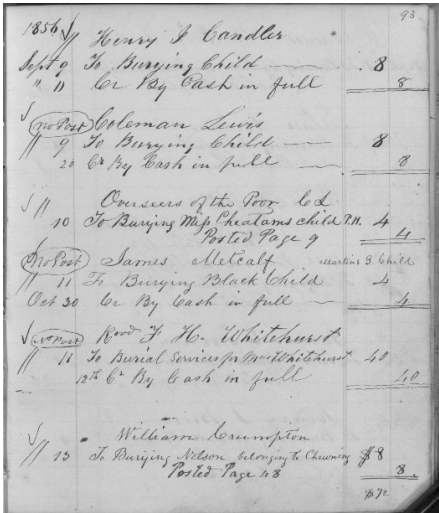 93
1856 Henry J Candler
Sept 9 To Burying Child 8
" 11 Cr By Cash in full 8
No Post Coleman Lewis
" 9 To Burying Child 8
20 Cr By Cash in full 8
" Overseers of the Poor
10 To Burying Miss Cheatams child P.H. 4
Posted Page 9 4
No Post James Metcalf Child
" 11 To Burying Black Child 4
Oct 30 Cr By Cash in full 4
No Post Revd F H. Whitehurst
" 11 To Burial Services for Mrs Whitehurst 40
12th Cr By Cash in full 40
William Crumpton
" 13 To Burying Nelson belonging to Chewning $8
Posted Page 48 8
$72